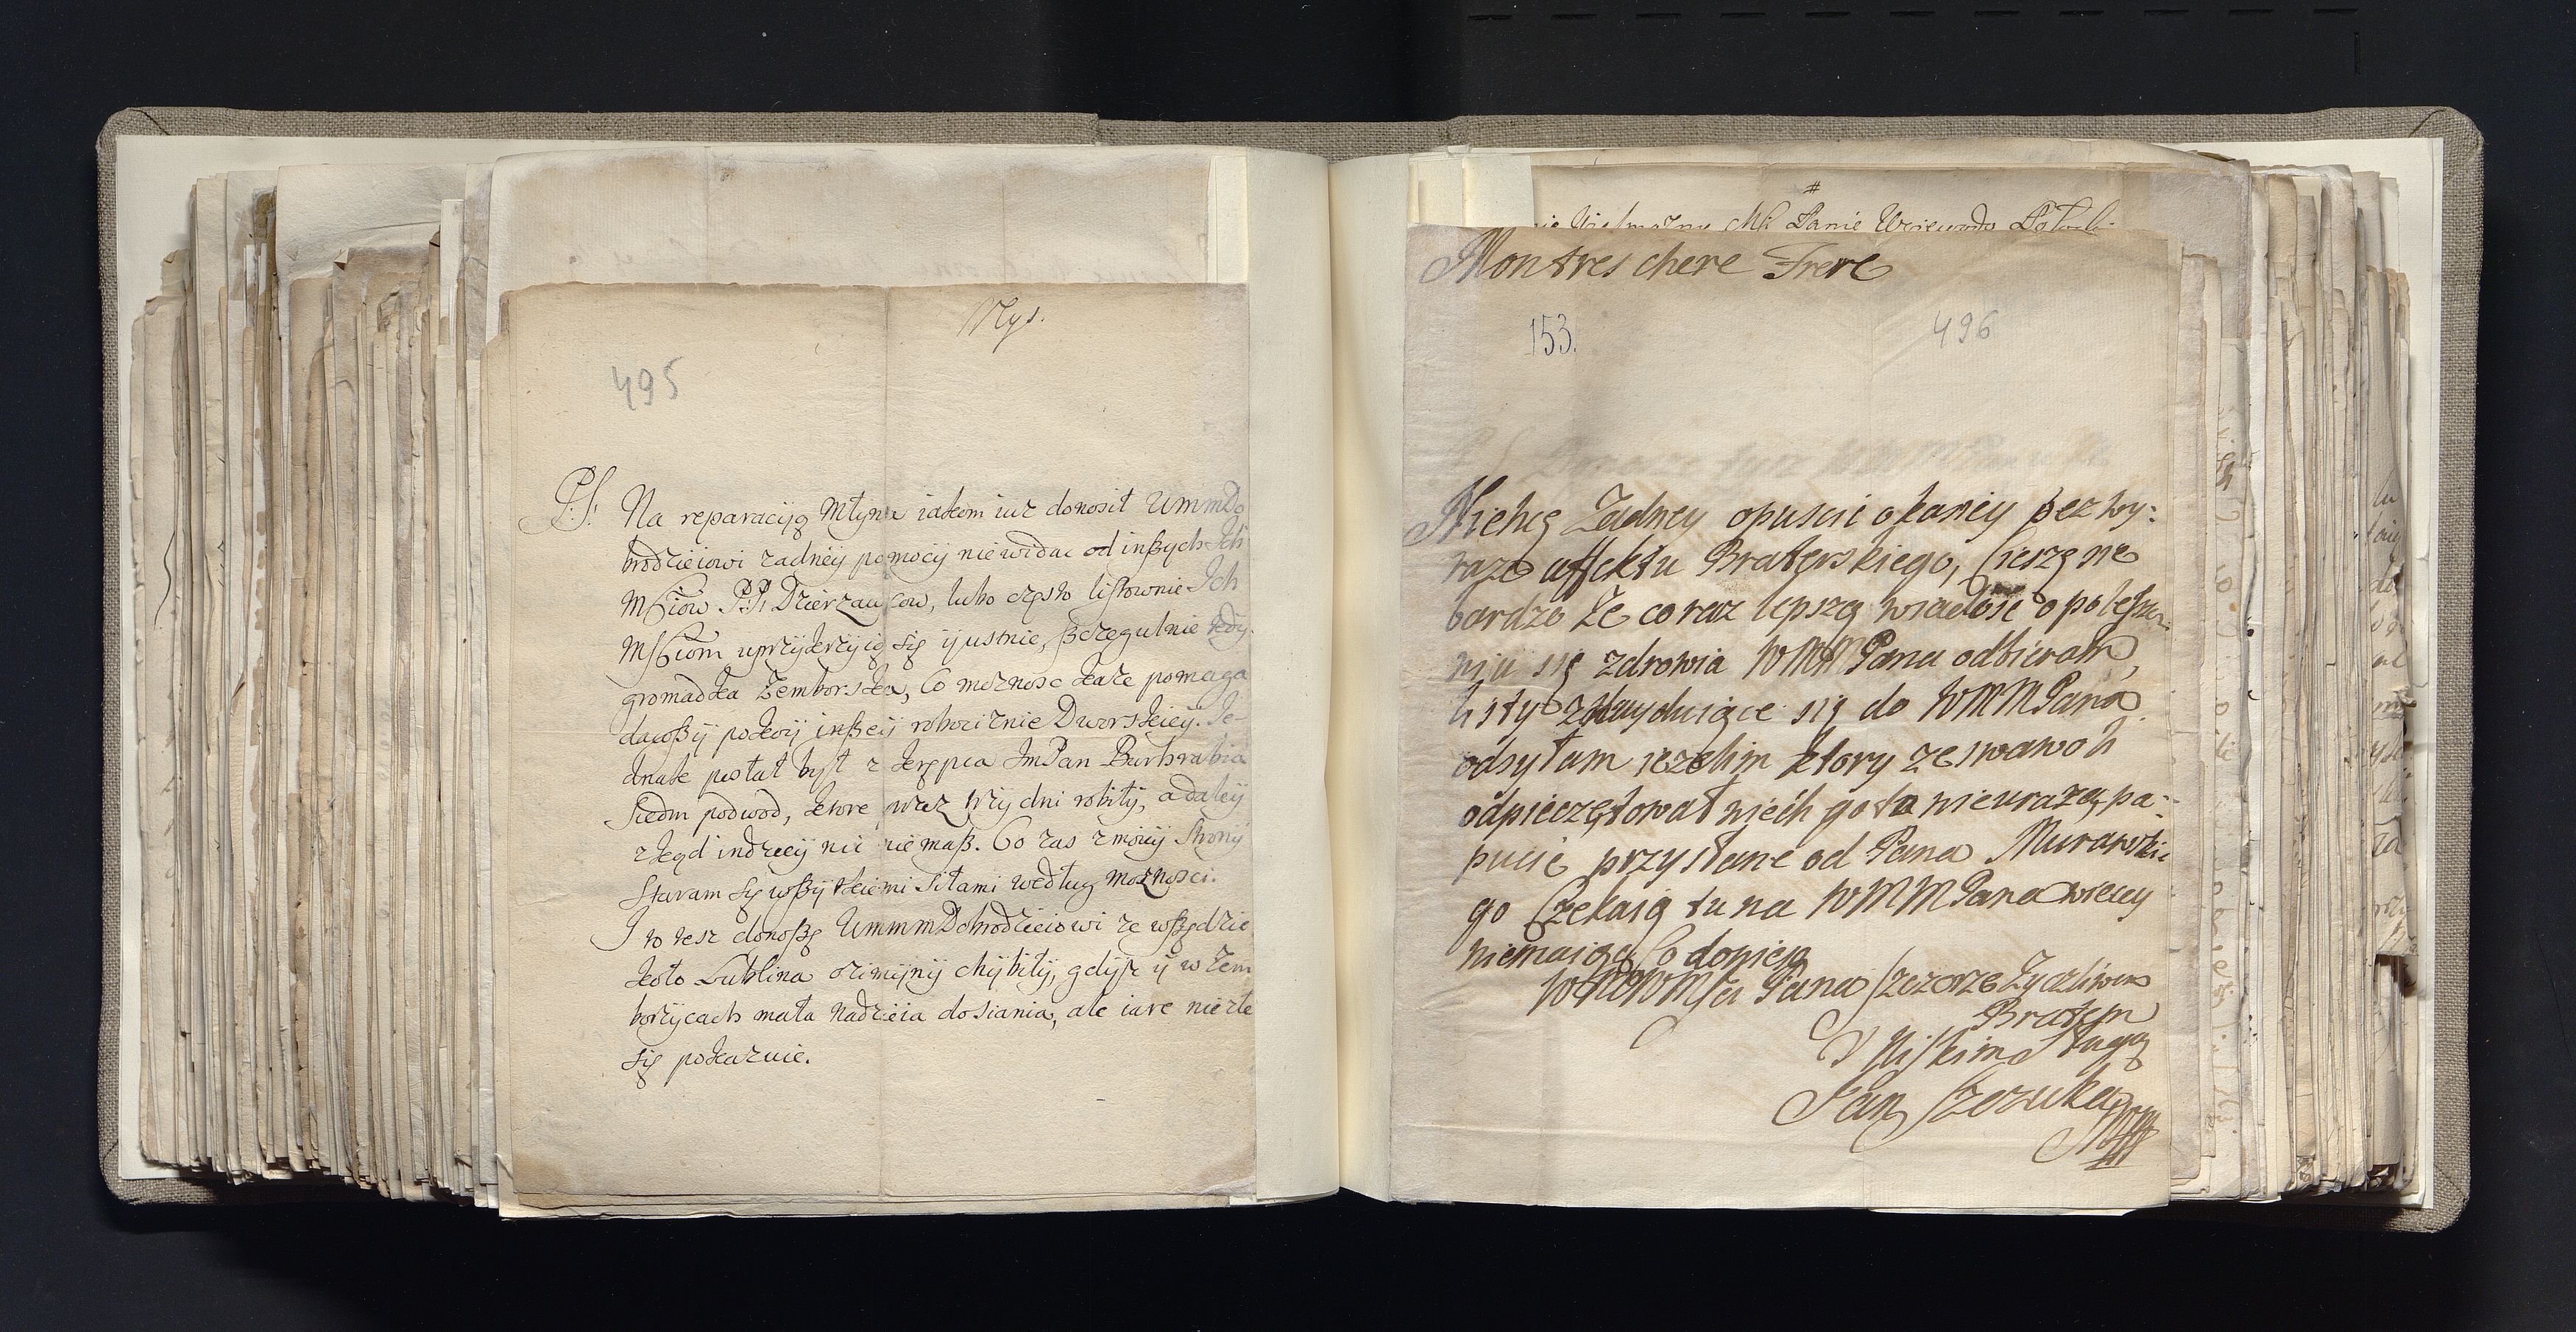 Mys.
495
P.S. Na reparacyją Młyna iakom iuz donosił UmmDo
brodzieiowi zadnėÿ pomocÿ nie widac od inßych Ich
MSciow P.P. Dzierzawcow, lubo często listownie Ich
MSciom uprzÿkrzÿię się ÿ ustnie, ßczegulnie tedÿ
gromadka Zemborska, Co moznosc każe pomaga
dawßÿ pokoÿ inßeÿ robociznie Dworskieÿ. Je-
dnak posłał bÿł z Kępca ImPan Burhrabia
Siedm podwod, ktore przez trzÿ dni robiłÿ, a daleÿ
zkąd indzieÿ nic nie maß. Co zas z moieÿ Stronÿ
staram się wßÿtkiemi siłami według moznosci.
I to tesz donoßę UmmmDobrodzieiowi ze wßędzie
koło Lublina oziminÿ chÿbiłÿ, gdÿß ÿ w Zem
borzÿcach mała nadzieia dosiania, ale iare nie zle
się pokazuie.
#
Panie Woiewodo
Montres chere Frere
153.
496
Niehcę Zadney opuscic okaniey bez wy:
razo affektu Braterskiego, Cieszę sie
bardzo że coraz lepszą wiadosc o polepsze:
niu się zdrowia WMM Pana odbieram,
listy znayduiące się do WMMPana
odsyłam iezelim ktory ze swawoli
odpieczętował niech go to nieuraza, pa:
pucie przysłane od Pana Murawskie
go Czekaią tu na WMMPana wiecey
niemaiąc Co donieść
WMMMSci Pana Szczerze Zyczliwem
Bratem
I Niskim Sługą
Jan Szczuka